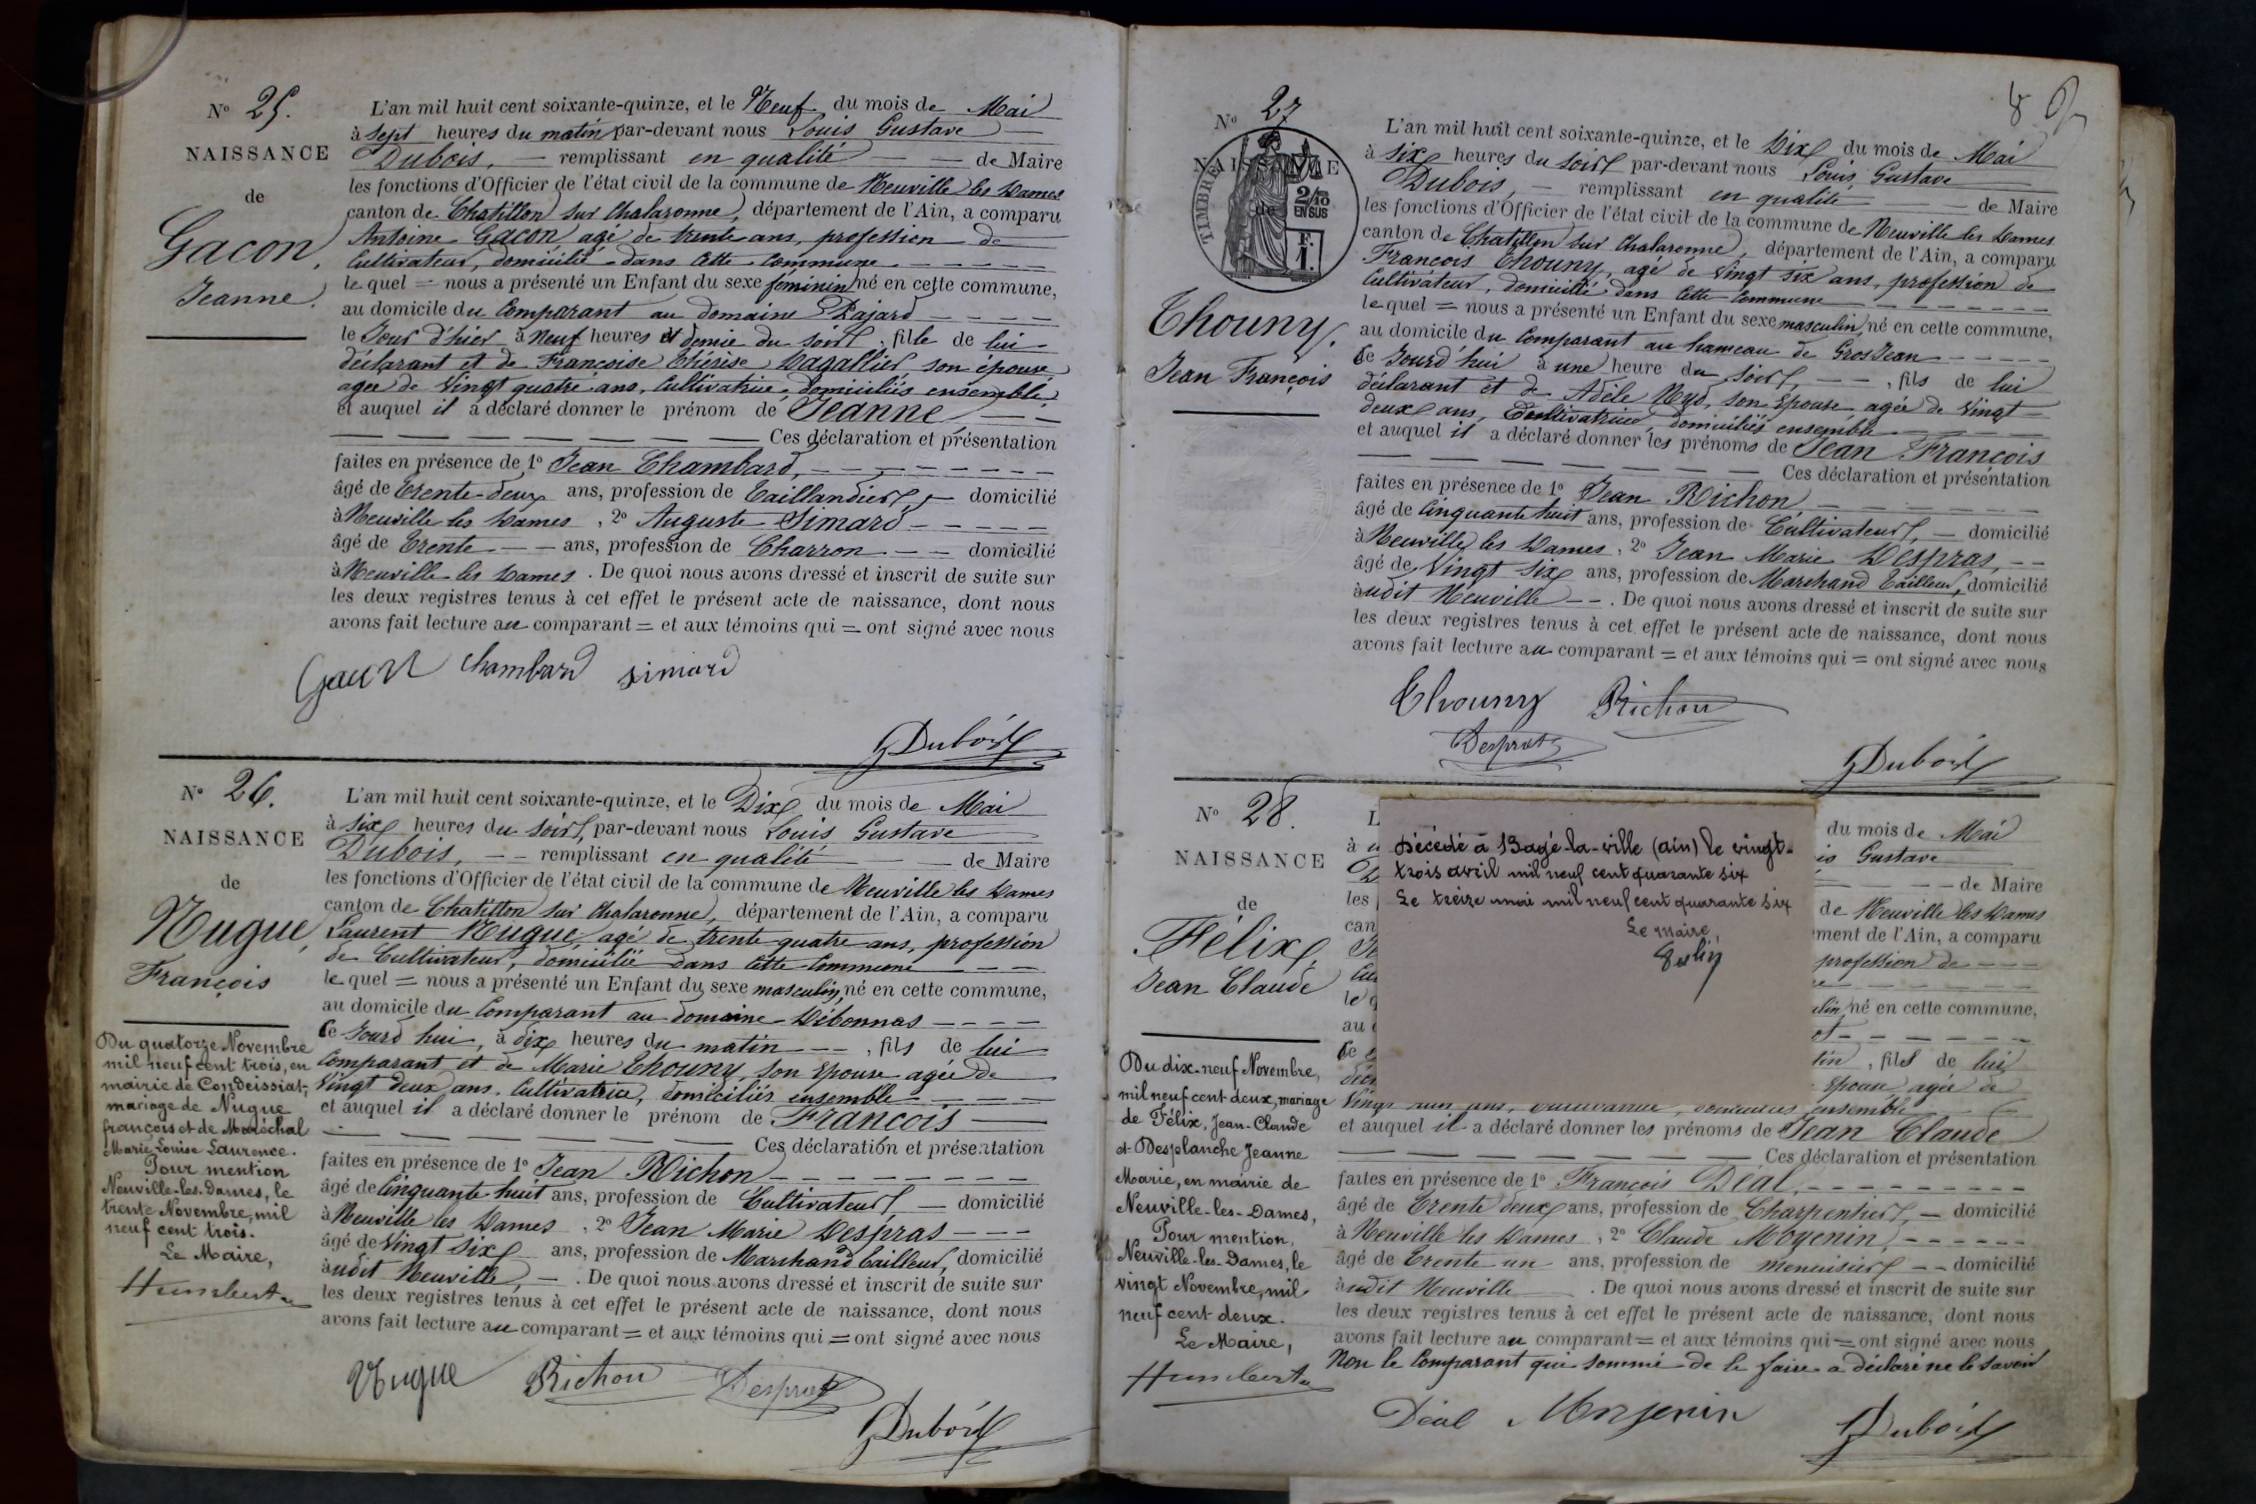 N° 25.
NAISSANCE
de
Gacon,
Jeanne.
L'an mil huit cent soixante-quinze, et le Neuf du mois de Mai
à sept heures du matin par-devant nous Louis Gustave
Dubois, remplissant en qualité de Maire
les fonctions d'Officier de l'état civil de la commune de Neuville les Dames
canton de Chatillon sur Chalaronne, département de l'Ain, a comparu
Antoine Gacon, agé de trente ans, profession de
Cultivateur, domicilié dans cette commune
le quel = nous a présenté un Enfant du sexe féminin né en cette commune,
au domicile du Comparant au domaine Pajard
le Jour d'hier à Neuf heures et demie du soir, fille de lui
déclarant et de Françoise Thérèse Dagallier, son épouse
agée de Vingt quatre ans, Cultivatrice, domiciliés ensemble,
et auquel il a déclaré donner le prénom de Jeanne
Ces déclaration et présentation
faites en présence de 1° Jean Chambard,
âgé de trente-deux ans, profession de Taillandier, domicilié
à Neuville les Dames, 2° Auguste Simard
âgé de trente ans, profession de Charron domicilié
à Neuville les Dames. De quoi nous avons dressé et inscrit de suite sur
les deux registres tenus à cet effet le présent acte de naissance, dont nous
avons fait lecture au comparant = et aux témoins qui = ont signé avec nous
Gacon Chambard Simard
GDubois
N° 26.
NAISSANCE
de
Nugue,
François
Du quatorze Novembre
mil neuf cent trois, en
mairie de Condeissiat,
mariage de Nugue
françois et de Maréchal
Marie Louise Laurence.
Pour mention
Neuville-les-Dames, le
trente Novembre, mil
neuf cent trois.
Le Maire,
Humbert
L'an mil huit cent soixante-quinze, et le Dix du mois de Mai
à six heures du soir, par-devant nous Louis Gustave
Dubois, remplissant en qualité de Maire
les fonctions d'Officier de l'état civil de la commune de Neuville les Dames
canton de Chatillon sur Chalaronne, département de l'Ain, a comparu
Laurent Nugue, agé de trente quatre ans, profession
de Cultivateur, domicilié dans cette Commune
le quel = nous a présenté un Enfant du sexe masculin, né en cette commune,
au domicile du Comparant au domaine Débonnas
Ce Jourd'hui, à dix heures du matin, fils de lui
Comparant et de Marie Thouny, son Epouse agée de
Vingt deux ans, Cultivatrice, domiciliés ensemble
et auquel il a déclaré donner le prénom de François
Ces déclaration et présentation
faites en présence de 1° Jean Richon
âgé de Cinquante huit ans, profession de Cultivateur, domicilié
à Neuville les Dames, 2° Jean Marie Despras
âgé de Vingt six ans, profession de Marchand tailleur, domicilié
audit Neuville, . De quoi nous avons dressé et inscrit de suite sur
les deux registres tenus à cet effet le présent acte de naissance, dont nous
avons fait lecture au comparant = et aux témoins qui = ont signé avec nous
Nugue Richon Despras
GDubois
N° 27
NAISSANCE
de
TIMBRE
2/10
EN SUS
F.
1.
Thouny.
Jean François
8
L'an mil huit cent soixante-quinze, et le Dix du mois de Mai
à six heures du soir par-devant nous Louis Gustave
Dubois, remplissant en qualité de Maire
les fonctions d'Officier de l'état civil de la commune de Neuville les Dames
canton de Chatillon sur Chalaronne, département de l'Ain, a comparu
François Thouny, agé de Vingt six ans, profession de
Cultivateur, domicilié dans cette Commune
le quel = nous a présenté un Enfant du sexe masculin, né en cette commune,
au domicile du Comparant au hameau de GrosJean
Ce Jourd'hui à une heure du soir, fils de lui
déclarant et de Adèle Nyd, son Epouse, agée de Vingt
deux ans, Cultivatrice, domiciliés ensemble
et auquel il a déclaré donner les prénoms de Jean François
Ces déclaration et présentation
faites en présence de 1° Jean Richon
âgé de Cinquante huit ans, profession de Cultivateur, domicilié
à Neuville les Dames, 2° Jean Marie Despras,
âgé de Vingt six ans, profession de Marchand tailleur, domicilié
audit Neuville. De quoi nous avons dressé et inscrit de suite sur
les deux registres tenus à cet effet le présent acte de naissance, dont nous
avons fait lecture au comparant = et aux témoins qui = ont signé avec nous
Thouny Richon
Despras
GDubois
N° 28.
NAISSANCE
de
Félix,
Jean Claude
Du dix-neuf Novembre,
mil neuf cent deux, mariage
de Félix, Jean-Claude
et Desplanche Jeanne
Marie, en mairie de
Neuville-les-Dames,
Pour mention,
Neuville-les-Dames, le
vingt Novembre, mil
neuf cent deux.
Le Maire,
Humbert
Décédé à Bagé-la-ville (ain) le vingt-
trois avril mil neuf cent quarante six
Le treize mai mil neuf cent quarante six
Le Maire,
du mois de Mai
Gustave
de Maire
les de Neuville les Dames
can ment de l'Ain, a comparu
profession de
né en cette commune,
au
fils de lui
Epouse, agée de
ans, domiciliés ensemble
et auquel il a déclaré donner les prénoms de Jean Claude
Ces déclaration et présentation
faites en présence de 1° François Déal,
âgé de trente deux ans, profession de Charpentier, domicilié
à Neuville les Dames, 2° Claude Moyenin,
âgé de trente un ans, profession de menuisier domicilié
audit Neuville. De quoi nous avons dressé et inscrit de suite sur
les deux registres tenus à cet effet le présent acte de naissance, dont nous
avons fait lecture au comparant = et aux témoins qui = ont signé avec nous
Non le Comparant qui sommé de le faire a déclaré ne le savoir
Déal Moyenin GDubois